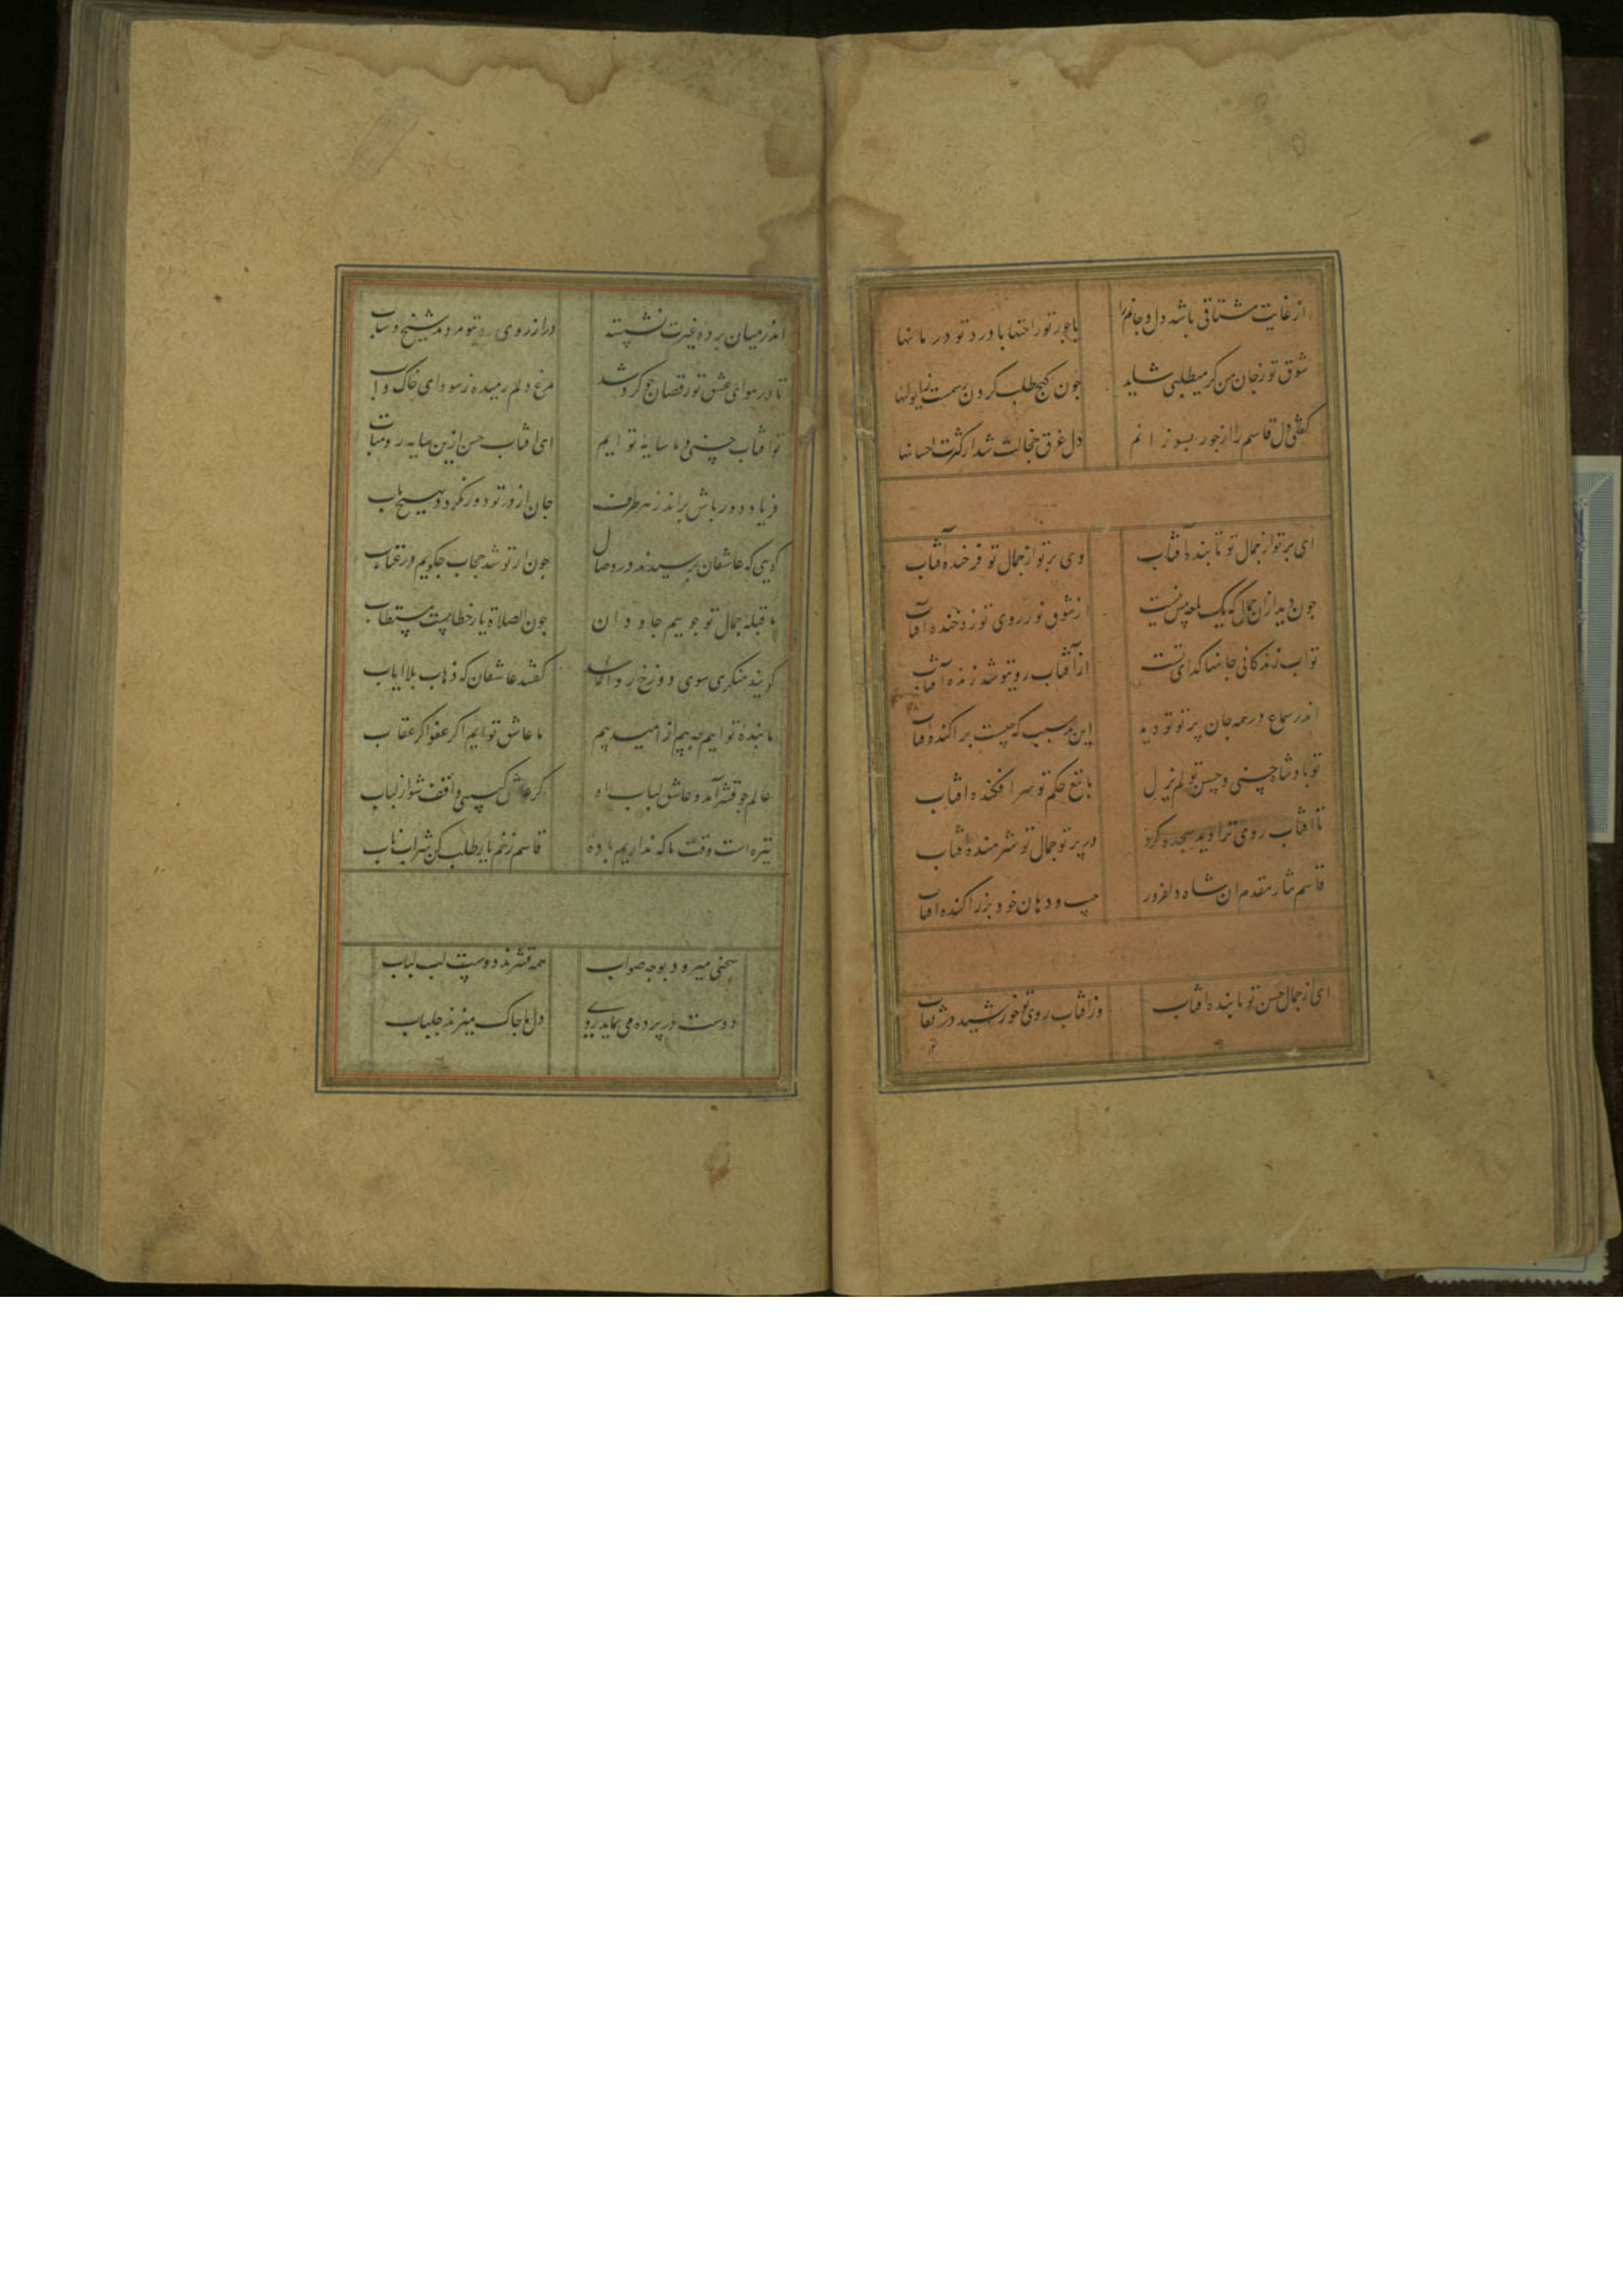 از غایت مشتاقی باشد دل و جانم را با جور تو راحتها با درد تو درمانها
شوق تو ز جان من گر میطلبی شاید چون گنج طلب کردن رسمست ز
گفتی دل قاسم را از جور بسوزانم دل غرق خجالت شد از کثرت احسانها
ای پرتو از جمال تو تابنده آفتاب وی پرتو از جمال تو فرخنده آفتاب
چون دید از آن جمال که یک لمعه بیش نیست از شوق نور روی تو زد خنده آفتاب
تو آب زندگانی جانها گدای تست از آفتاب روی تو شد زنده آفتاب
اندر سماع در همه جان پرتو تو دید این بد سبب که چیست پراکنده آفتاب
تو پادشاه حسنی و حسن تو لم یزل با تیغ حکم تو سرافکنده افتاب
تا افتاب روی ترا دید سجده کرد در پرتو جمال تو شرمنده افتاب
قاسم نثار مقدم ان شاه دلفروز جیب و دهان خود بزر اکنده افتاب
ای از جمال حسن تو تابنده افتاب وز افتاب روی تو خورشید در نقاب
اندر میان پرده غیرت نشسته در ارزوی تو مردمد شیخ و شاب
تا در هوای عشق تو رقصان چو گرد شد مرغ دلم رمیده ز سودای خاک و اب
تو افتاب حسنی و ما سایه توایم ای افتاب حسن ازین سایه رو متاب
فریاد دور باش براند ز هر طرف جان از در تو دور نگردد بهیچ باب
گویی که عاشقان برسیدند در وصال چون از تو شد حجاب چگویم در عتاب
ما قبله جمال تو جوییم جاودان چون الصلاة یار خطابیست مستطاب
گویند منکری سوی دوزخ روانه شد گفتند عاشقان که ذهاب بلا ایاب
ما بنده توایم چه بیم از امید و بیم ما عاشق توایم اگر عفو اگر عقاب
عالم چو قشر آمد و عاشق لباب او گر عاشق کسی واقف شو از لباب
تیره است وقت ما که نداریم باده قاسم ز خم یار طلب کن شراب ناب
سخنی میرود بوجه صواب همه قشرند دوست لب لباب
دوست در پرده می نماید روی دل ما چاک میزند جلباب